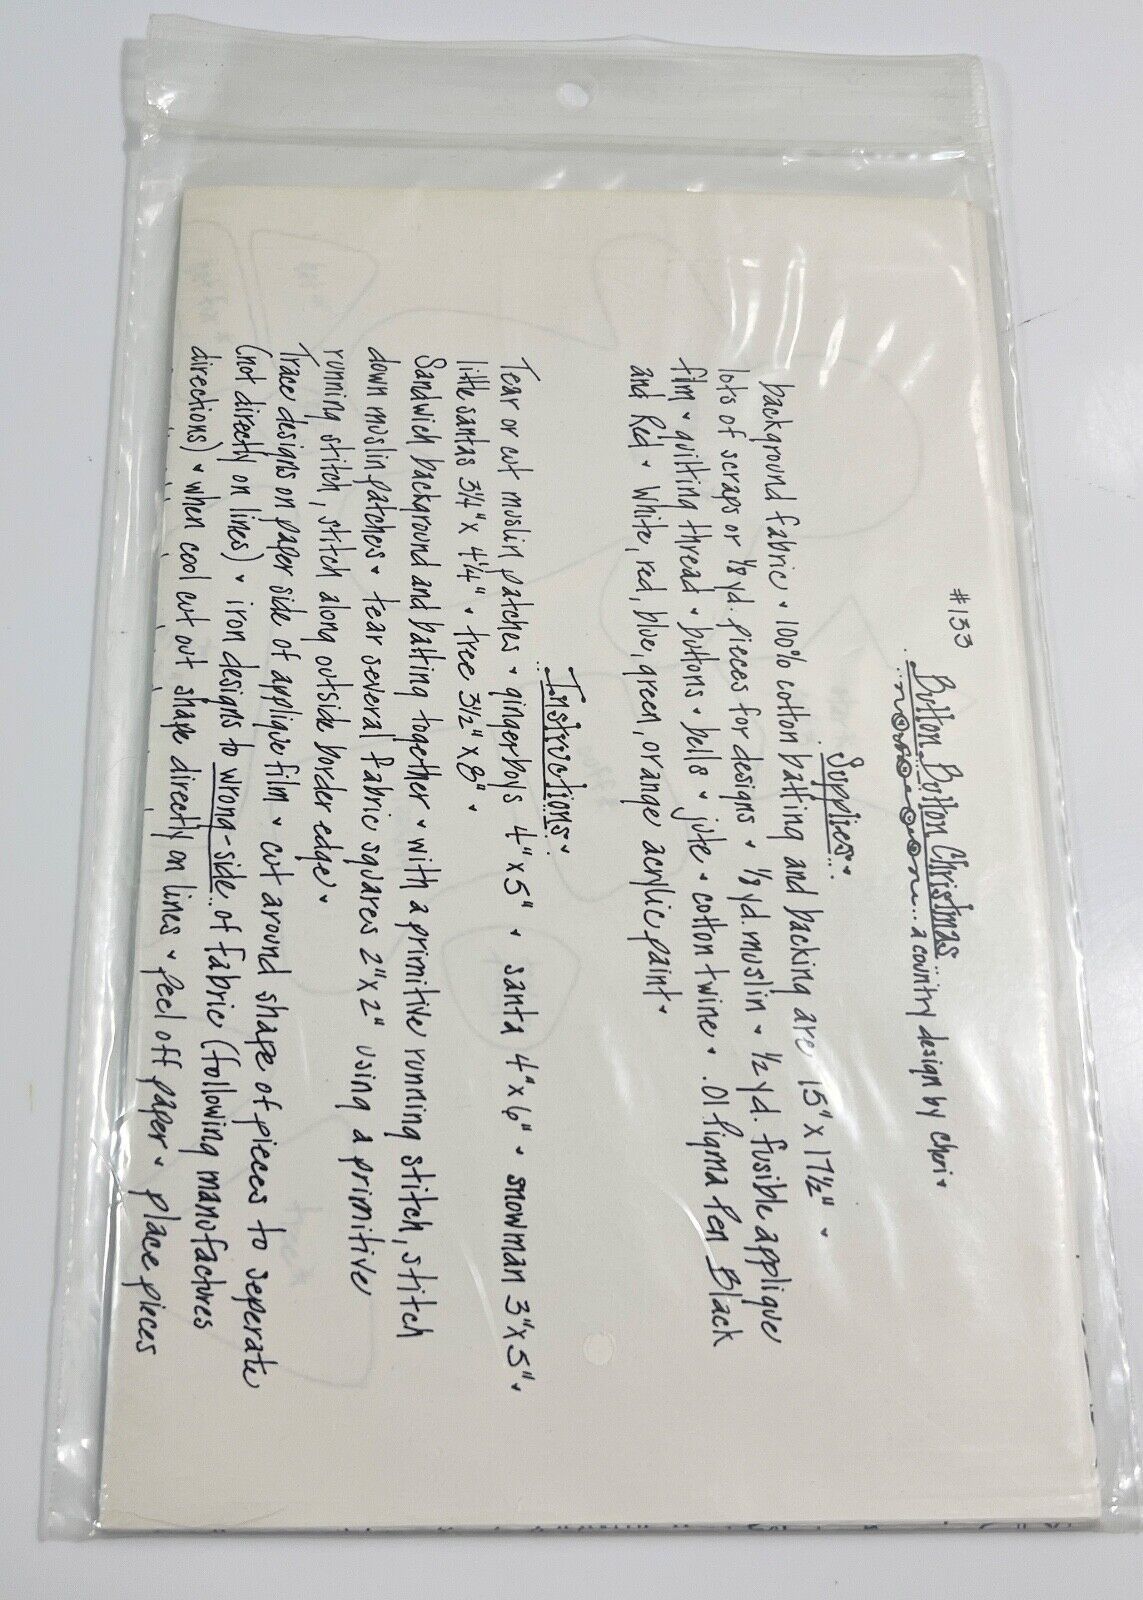 #133
Button Button Christmas
...a country design by Cheri
Supplies
background fabric • 100% cotton batting and backing are 15" x 17½" •
lots of scraps or ⅛ yd. pieces for designs • ⅛ yd. muslin • ½ yd. fusible applique
film • quilting thread • buttons • bells • jute • cotton twine • .01 Pigma Pen Black
and Red • White, red, blue, green, orange acrylic paint •
Instructions
Tear or cut muslin patches • gingerboys 4" x 5" • santa 4" x 6" • snowman 3" x 5" •
little santas 3¼" x 4¼" • tree 3½" x 8" •
Sandwich background and batting together • with a primitive running stitch, stitch
down muslin patches • tear several fabric squares 2" x 2" using a primitive
running stitch, stitch along outside border edge •
Trace designs on paper side of applique film • cut around shape of pieces to seperate
(not directly on lines) • iron designs to wrong-side of fabric (following manufactures
directions) • when cool cut out shape directly on lines • peel off paper • place pieces